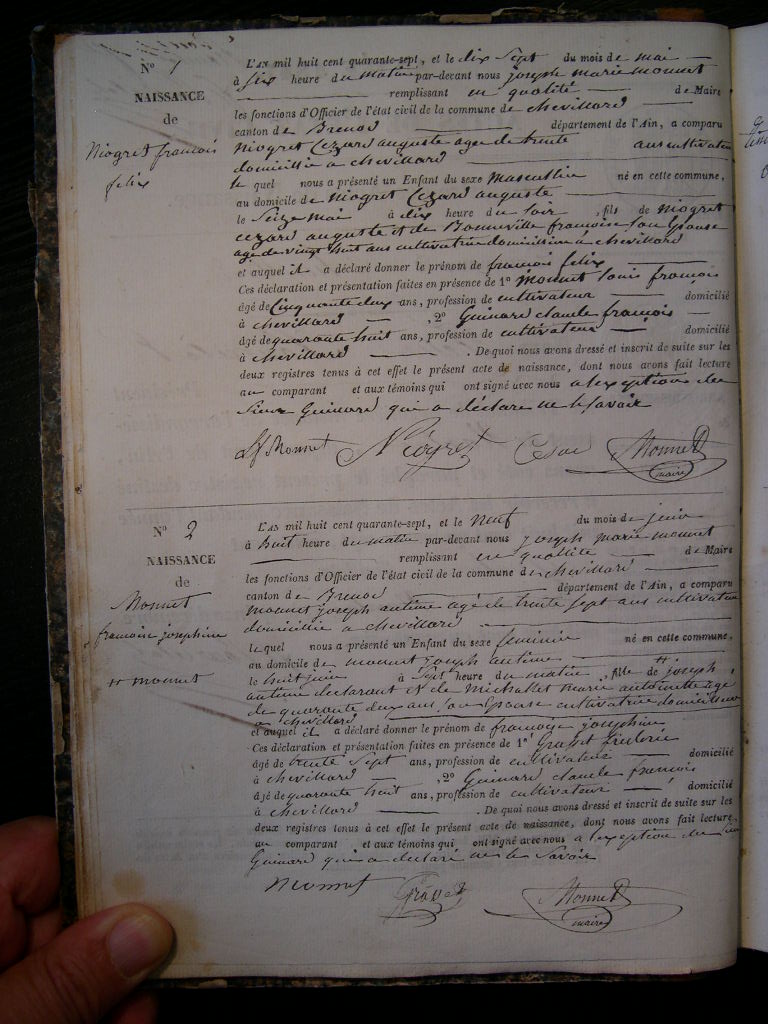 N° 1
NAISSANCE
de
Niogret francois
felix
L'AN mil huit cent quarante-sept, et le dix Sept du mois de mai
à Six heure du matin par-devant nous joseph marie monnet
remplissant en qualité de Maire
les fonctions d'Officier de l'état civil de la commune de chevillard
canton de Brenod département de l'Ain, a comparu
Niogret Cezard auguste age de trente ans cultivateur
domicillie a chevillard
le quel nous a présenté un Enfant du sexe Masculin né en cette commune,
au domicile de Niogret Cezard auguste
le Seize mai à dix heure du soir, fils de Niogret
cezard auguste et de Bonneville françoise son Epouse
age de vingt huit ans cultivatrice domicilliee a chevillard
et auquel il a déclaré donner le prénom de francois felix
Ces déclaration et présentation faites en présence de 1° Monnet louis françois
âgé de Cinquante deux ans, profession de cultivateur domicilié
à chevillard, 2° Guinard claude françois
âgé de quarante huit ans, profession de cultivateur domicilié
à chevillard. De quoi nous avons dressé et inscrit de suite sur les
deux registres tenus à cet effet le présent acte de naissance, dont nous avons fait lecture
au comparant et aux témoins qui ont signé avec nous a lexception de
Sieur Guinard qui a déclare ne le savoir
Monnet Niogret Cesar Monnet
maire
N° 2
NAISSANCE
de
Monnet
francoise josephine
H monnet
L'AN mil huit cent quarante-sept, et le neuf du mois de juin
à huit heure du matin par-devant nous joseph marie monnet
remplissant en quallité de Maire
les fonctions d'Officier de l'état civil de la commune de chevillard
canton de Brenod département de l'Ain, a comparu
monnet joseph antime agé de trente sept ans cultivateur
domicillie a chevillard
le quel nous a présenté un Enfant du sexe feminin né en cette commune,
au domicile de monnet joseph antime
le huit juin à Sept heure du matin, fille de H joseph
antime declarant et de Michallet marie antoinette age
de quarante deux ans, son Epouse cultivatrice domicilliee
a chevillard
et auquel il a déclaré donner le prénom de francoise josephine
Ces déclaration et présentation faites en présence de 1°
âgé de trente Sept ans, profession de cultivateur domicilié
à chevillard, 2° Guinard claude francois
âgé de quarante huit ans, profession de cultivateur domicilié
à chevillard. De quoi nous avons dressé et inscrit de suite sur les
deux registres tenus à cet effet le présent acte de naissance, dont nous avons fait lecture
au comparant et aux témoins qui ont signé avec nous a lexception du Sieur
Guinard qui a déclaré ne le Savoir
monnet Monnet
maire